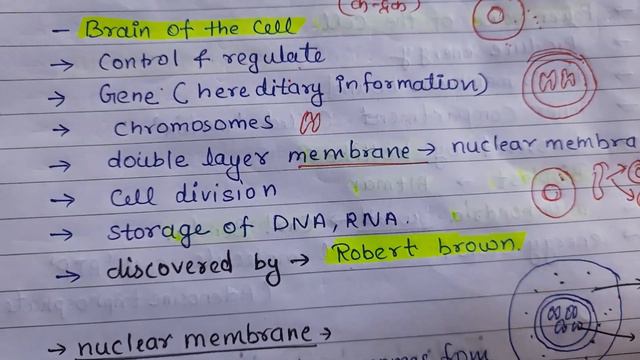 - Brain of the cell
→ control & regulate
→ Gene (hereditary information)
→ chromosomes
→ double layer membrane → nuclear membra
→ cell division
→ storage of DNA, RNA.
→ discovered by → Robert brown.
→ nuclear membrane →